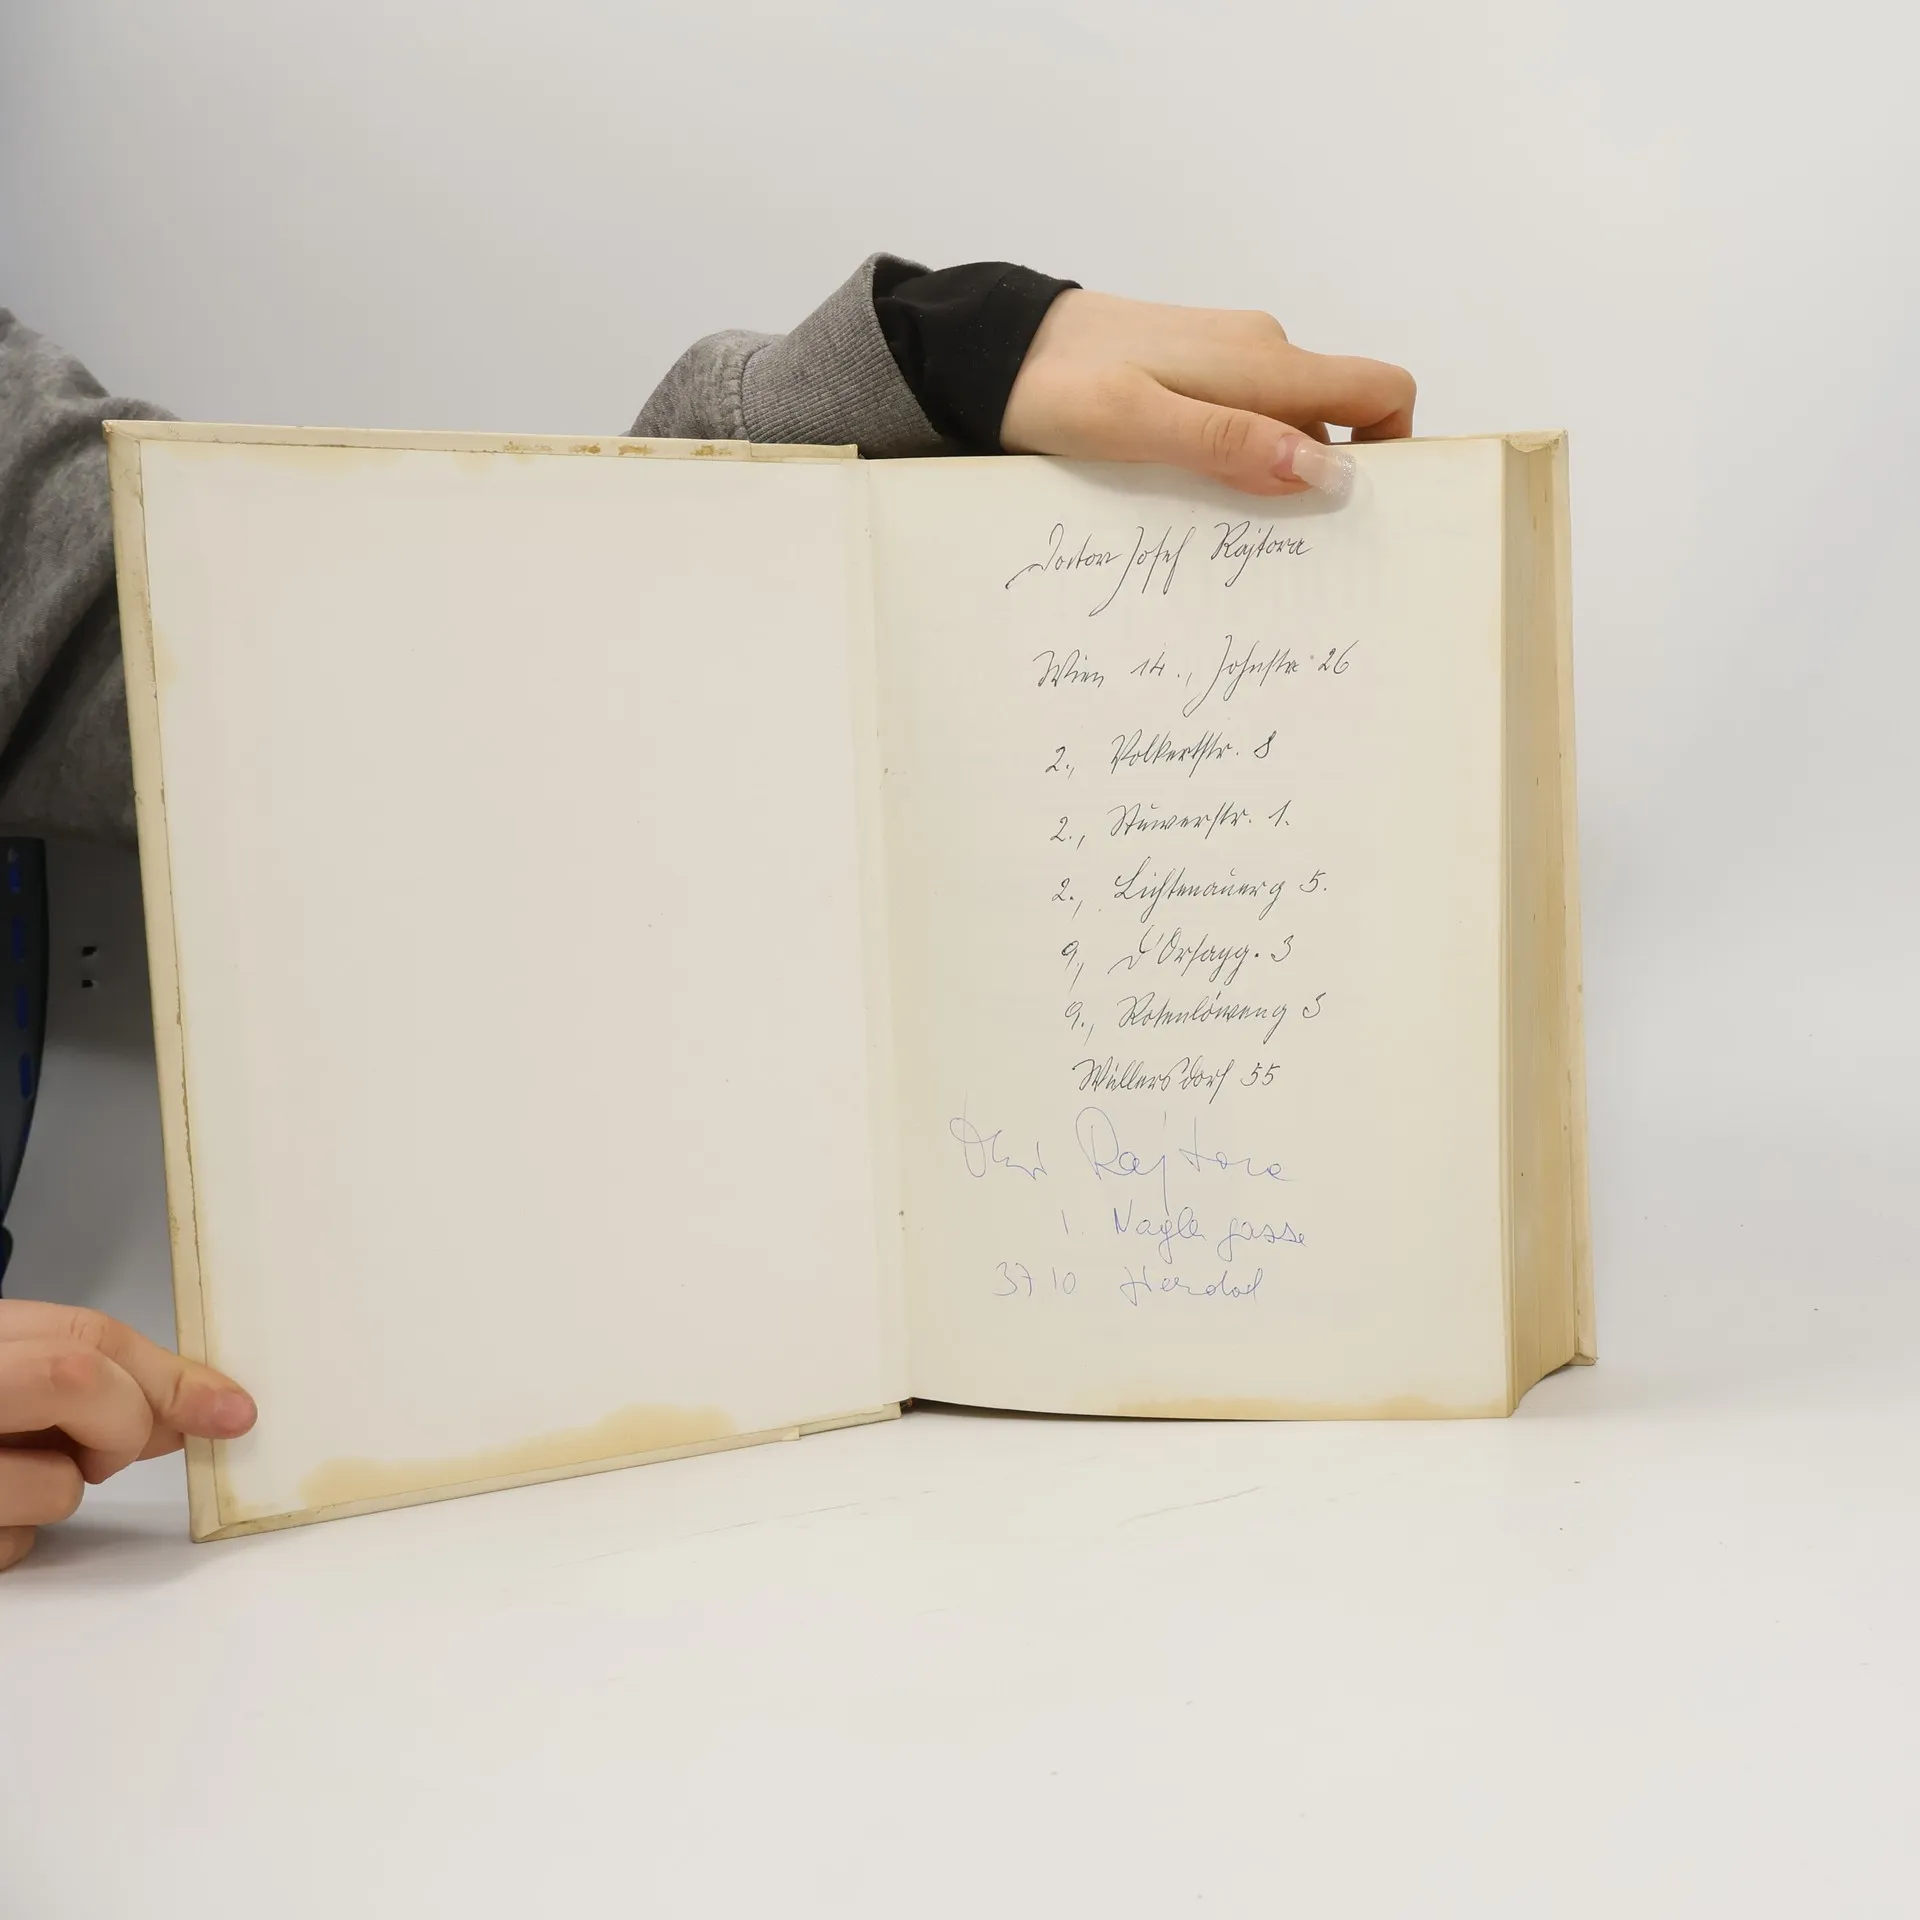 Doctor Josef Rajtora
Wien 14., Johnstr 26
2., Volkertstr. 8
2., Stuwerstr. 1.
2., Lichtenauerg 5.
9., D'Orsayg. 3
9., Rotenlöweng 5
Wullersdorf 55
Rajtora
1. Nagle gasse
3710